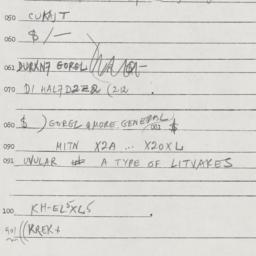 050 CURAJT
060 $/—
061 DURXN7 GORGL
070 DI HAL7D222 (212
080 $ ) GORGL & MORE GENERAL 001 $
090 MITN X2A ... X20XL
091 UVULAR A TYPE OF LITVAKES
100 KH-EL5XL5 .
901 ((KREK+